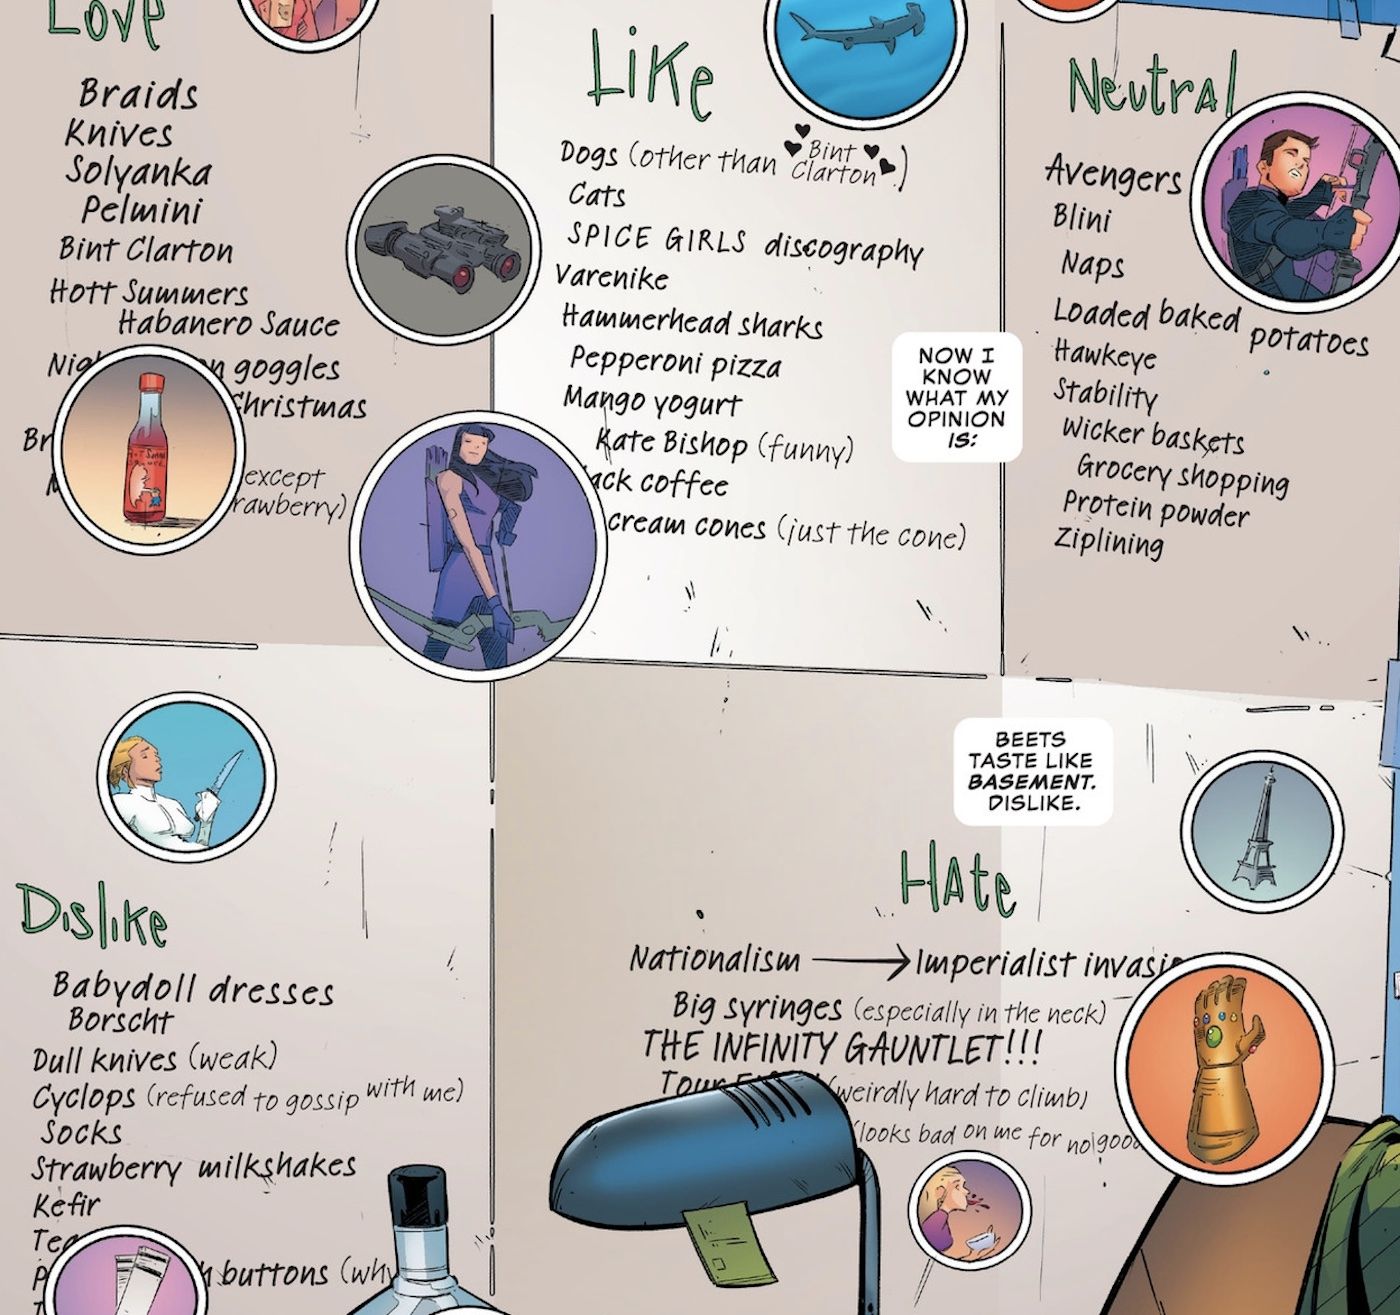 Love
Braids
Knives
Solyanka
Pelmini
Bint Clarton
Hott Summers
Habanero Sauce
goggles
Christmas
(except
Like
Dogs (other than Bint
Clarton.)
Cats
SPICE GIRLS discography
Varenike
Hammerhead sharks
Pepperoni pizza
Mango yogurt
Kate Bishop (funny)
coffee
cream cones (just the cone)
NOW I
KNOW
WHAT MY
OPINION
IS:
Neutral
Avengers
Blini
Naps
Loaded baked potatoes
Hawkeye
Stability
Wicker baskets
Grocery shopping
Protein powder
Ziplining
BEETS
TASTE LIKE
BASEMENT.
DISLIKE.
Dislike
Babydoll dresses
Borscht
Dull knives (weak)
Cyclops (refused to gossip with me)
Socks
Strawberry milkshakes
Kefir
buttons (why
Hate
Nationalism → Imperialist
Big syringes (especially in the neck)
THE INFINITY GAUNTLET!!!
(weirdly hard to climb)
(looks bad on me for no good